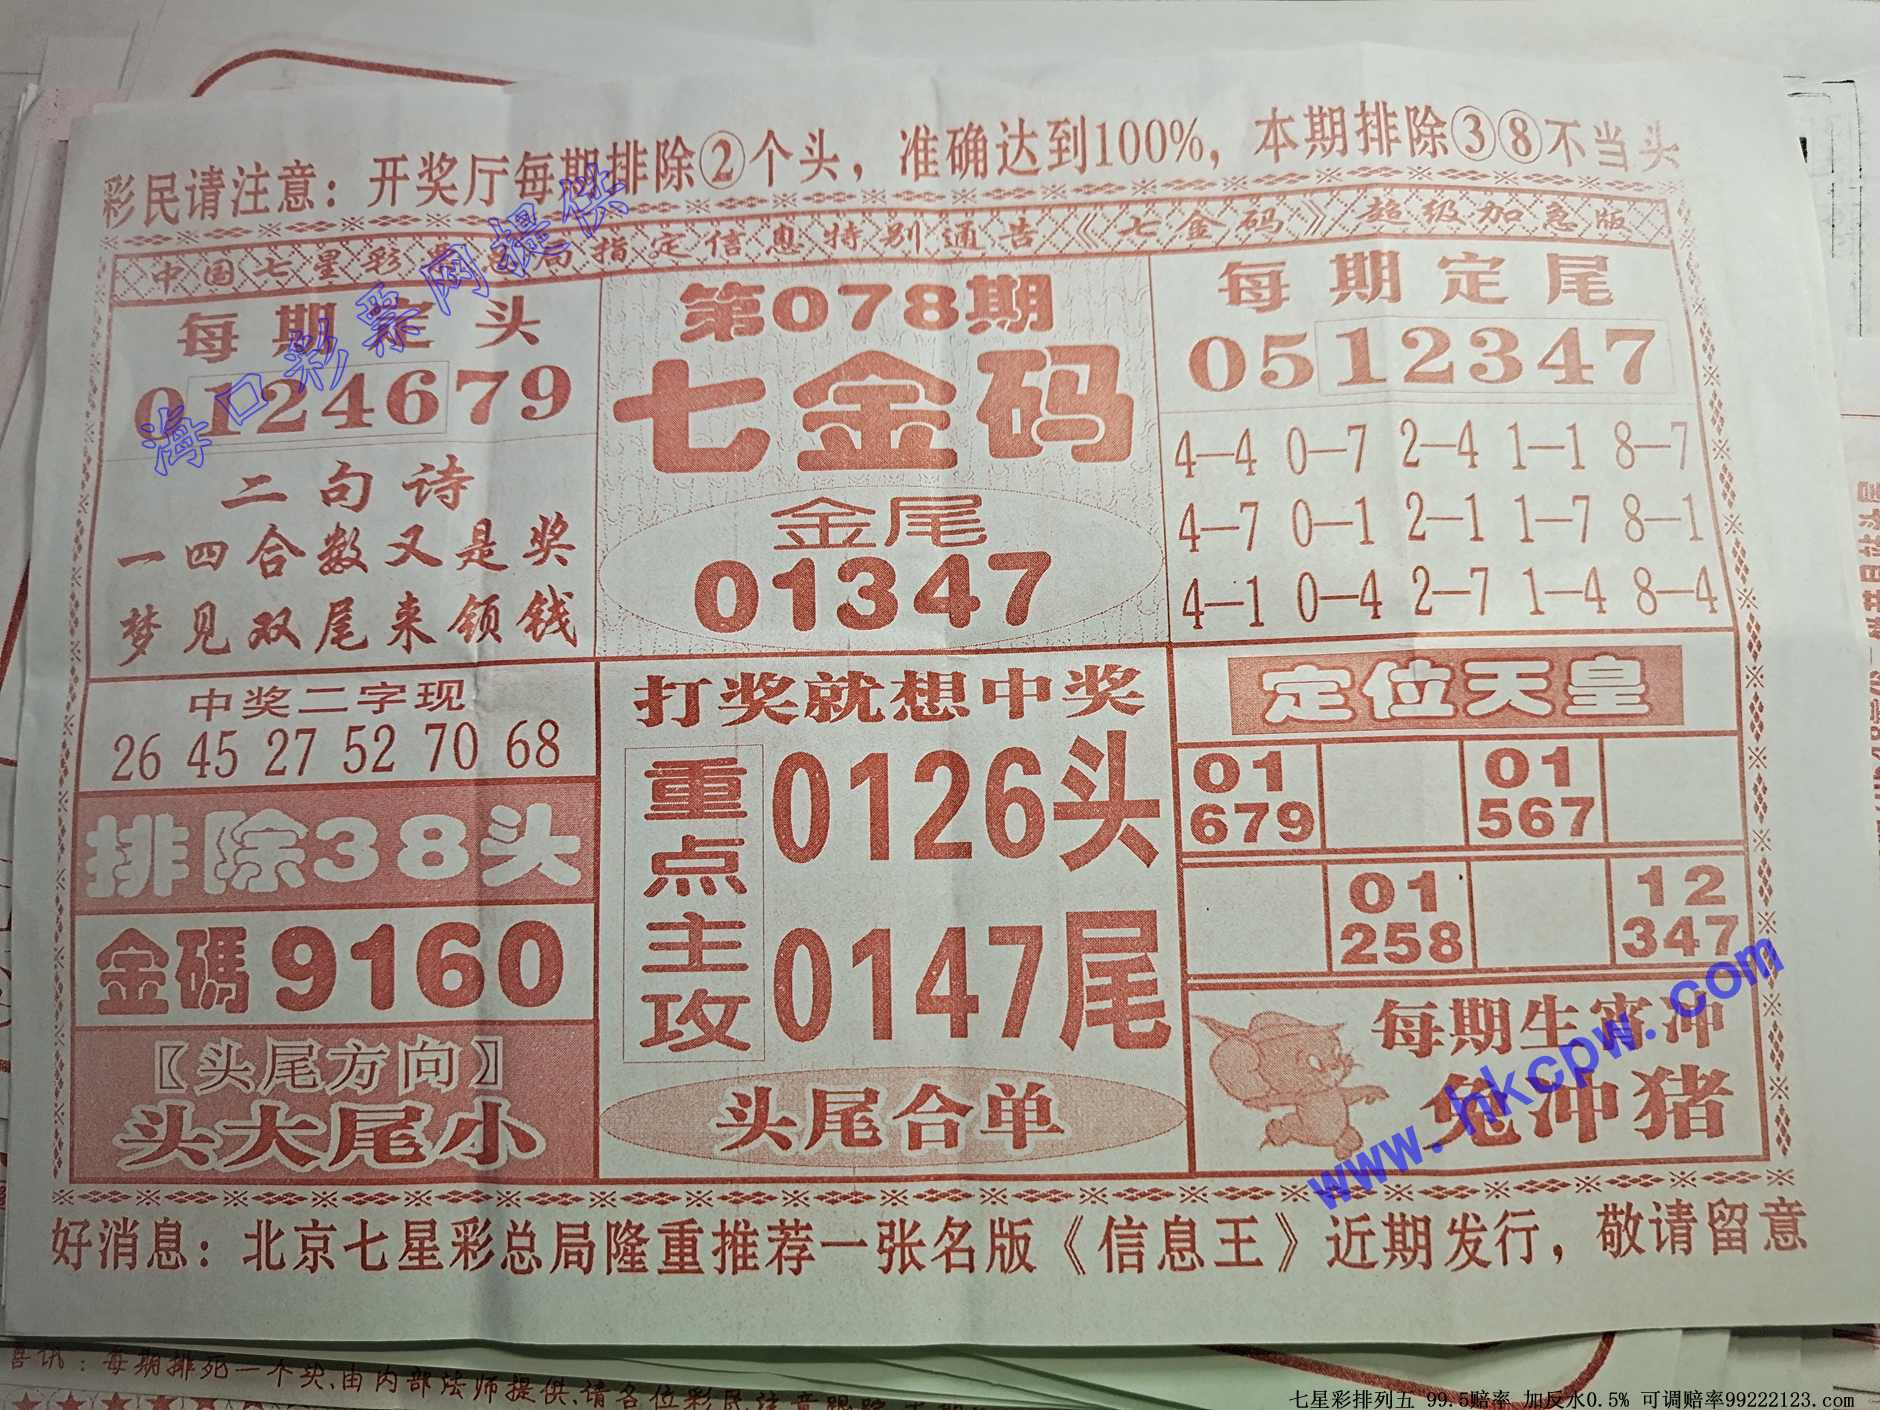 彩民请注意：开奖厅每期排除②个头，准确达到100%，本期排除③⑧不当头
中国七星彩票总局指定信息特别通告《七金码》超级加急版
每期定头
0124679
二句诗
一四合数又是奖
梦见双尾来领钱
第078期
七金码
金尾
01347
每期定尾
0512347
4—4 0—7 2—4 1—1 8—7
4—7 0—1 2—1 1—7 8—1
4—1 0—4 2—7 1—4 8—4
中奖二字现
26 45 27 52 70 68
排除38头
金碼9160
〖头尾方向〗
头大尾小
打奖就想中奖
重点主攻
0126头
0147尾
头尾合单
定位天皇
01 01
679 567
01 12
258 347
每期生宵冲
兔冲猪
好消息：北京七星彩总局隆重推荐一张名版《信息王》近期发行，敬请留意
海口彩票网提供
www.hkcpw.com
喜讯：每期排死一个头,由内部法师提供,请各位彩民注意跟踪
七星彩排列五 99.5赔率 加反水0.5% 可调赔率99222123.com